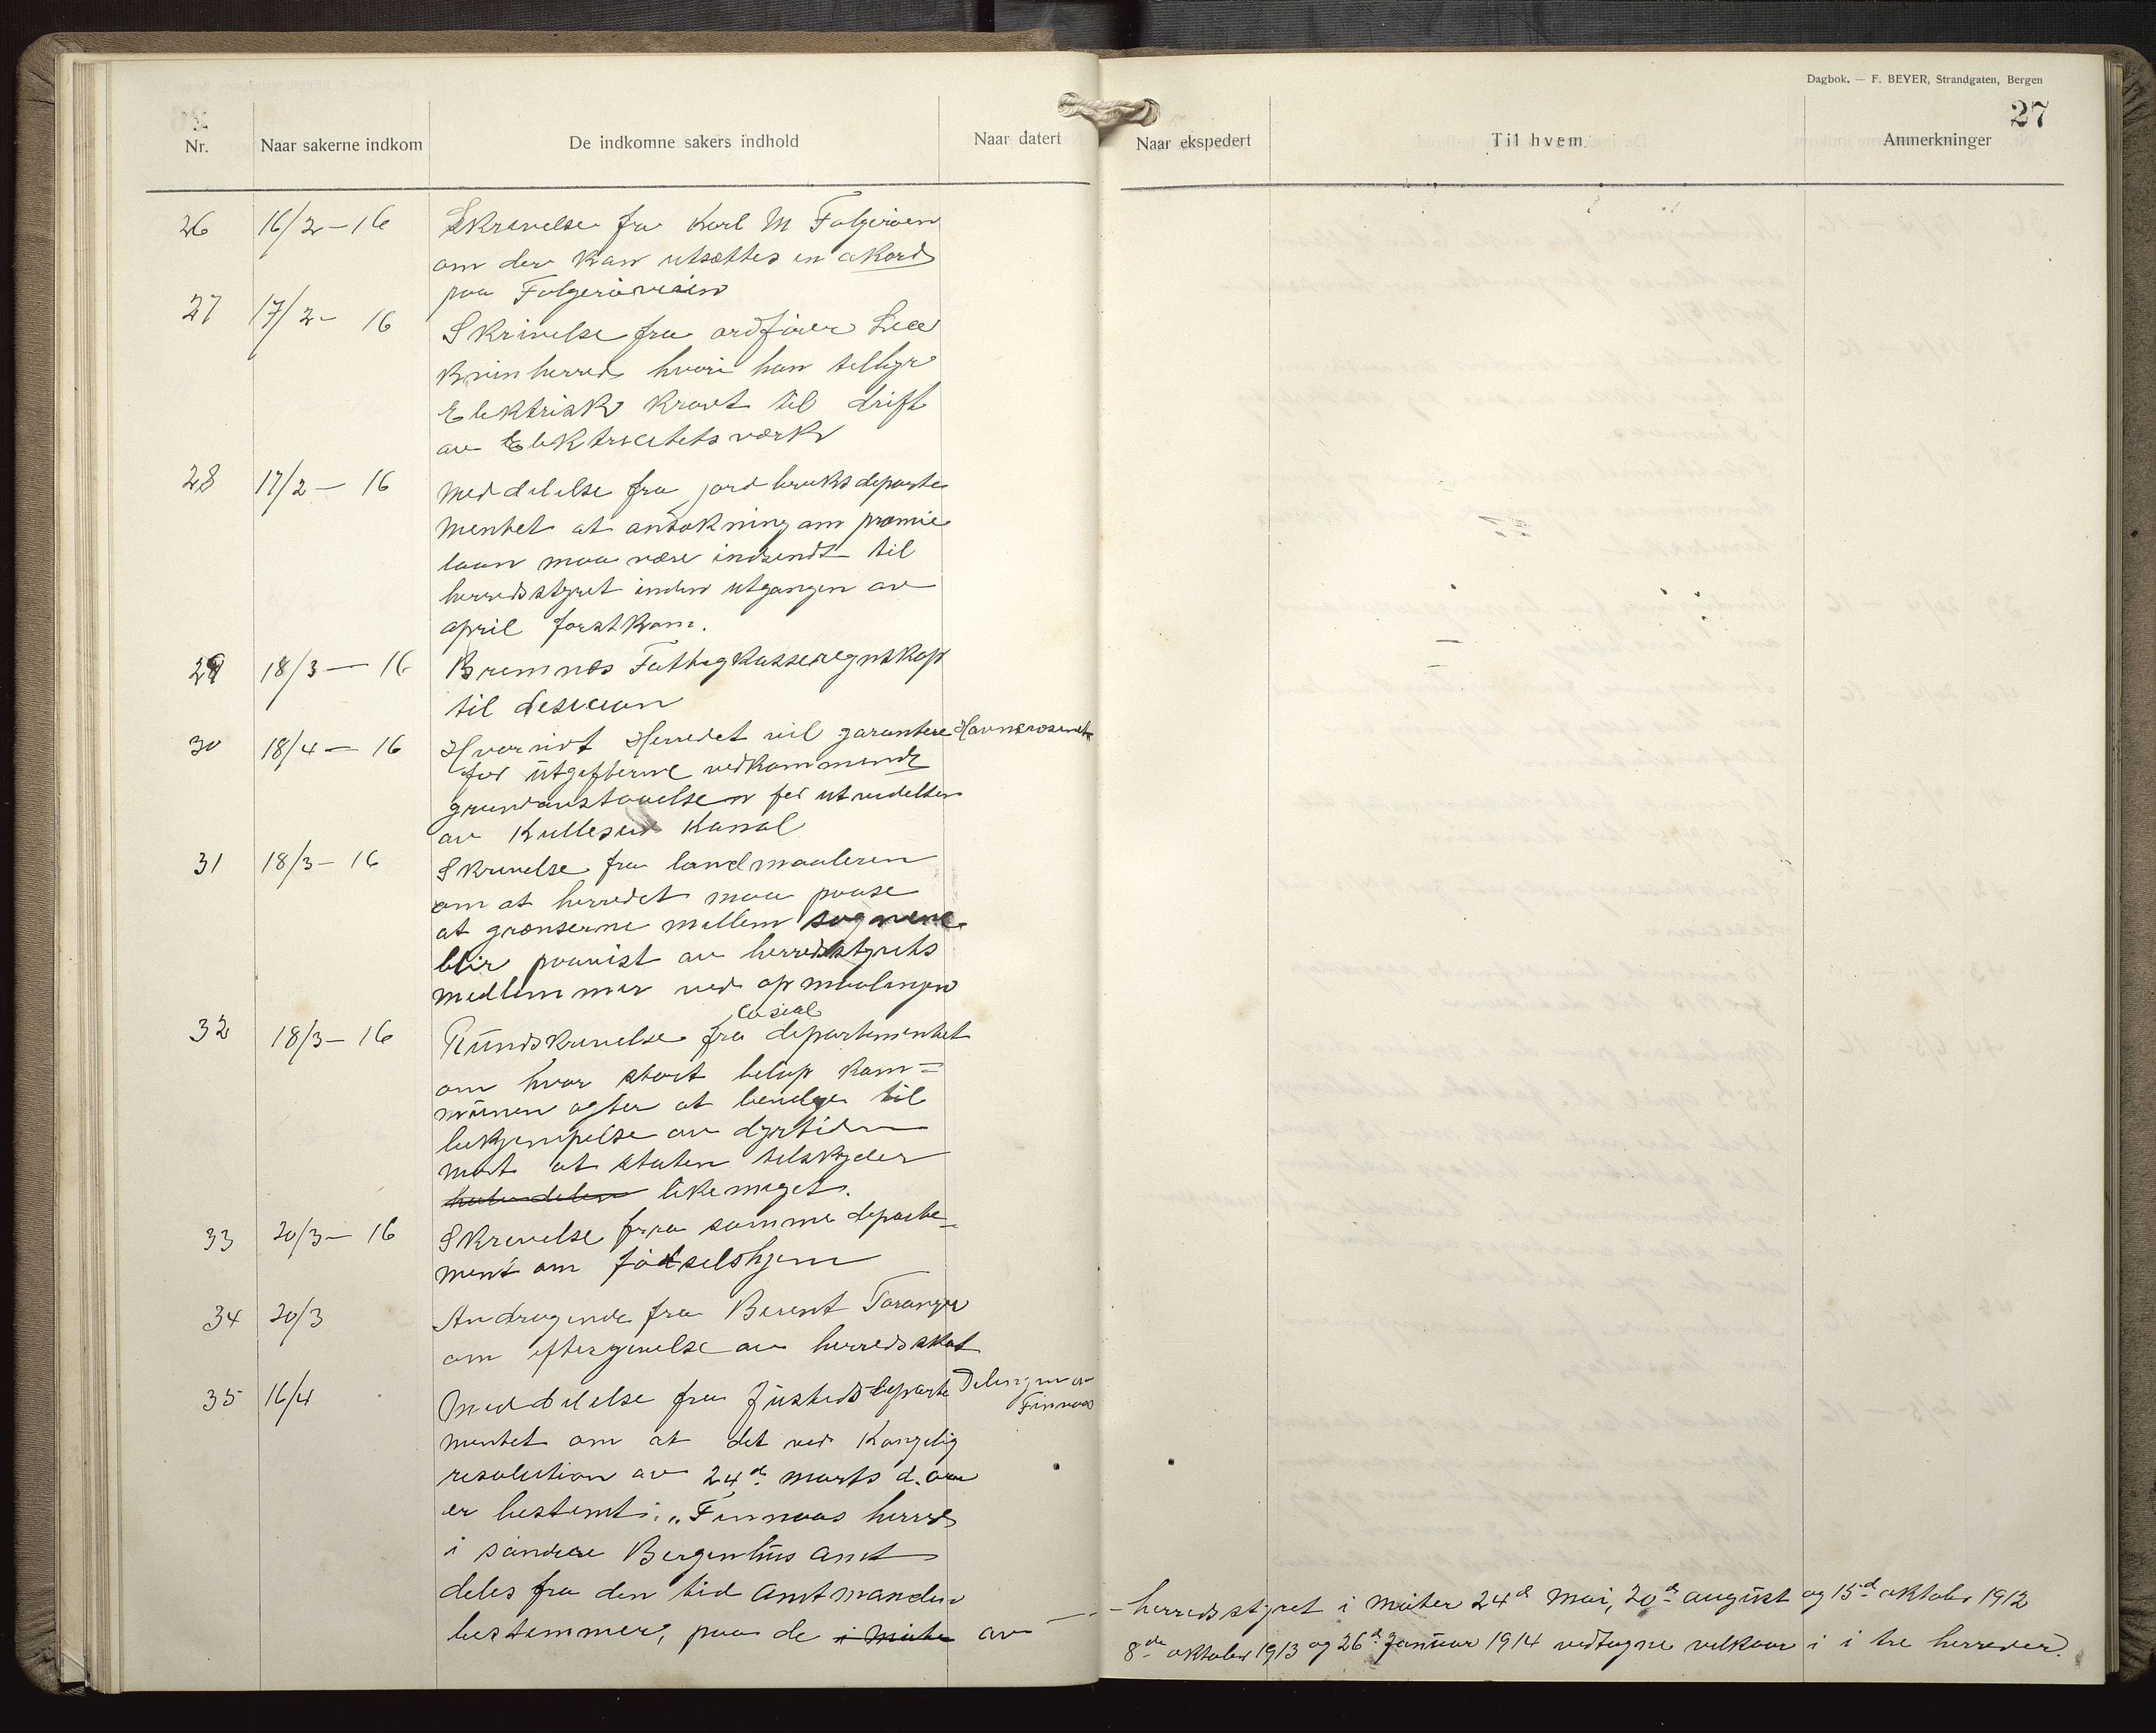 Dagbok. — F. BEYER, Strandgaten, Bergen
27
Nr. Naar sakerne indkom De indkomne sakers indhold Naar datert Naar ekspedert Til hvem Anmerkninger
26 16/2-16 Skrivelse fra Karl M Folgerøen
om der kan utsættes en akord
paa Folgerøveien
27 17/2- 16 Skrivelse fra ordfører Lea
Kvinherred hvori han tilbyr
Elektrisk kraft til drift
av Elektricitetsværk
28 17/2 - 16 Meddelelse fra jordbruksdeparte
mentet at ansøkning om præmie
laan maa være indsendt til
herredsstyret inden utgangen av
april førstkom.
29 18/3 - 16 Bremnes Fattigkasseregnskap
til desision
30 18/4 - 16 Hvorvidt Herredet vil garantere Havnevæsenet
for utgifterne vedkommende
grundavstaaelsen for utvidelsen
av Kullesund Kanal
31 18/3- 16 Skrivelse fra landmaaleren
om at herredet maa paase
at grænserne mellem sognene
blir paavist av herredsstyrets
medlemmer ved opmaalingen
32 18/3- 16 Rundskrivelse fra social departementet
om hvor stort beløp kom=
munen agter at bevilge til
bekjempelse av dyrtiden
mot at staten tilskyder
halvdelen likemeget.
33 20/3- 16 Skrivelse fra samme departe-
ment om fødselshjem
34 20/3 Andragende fra Berent Taranger
om eftergivelse av herredsskat
35 16/4 Meddelelse fra Justisdeparte Delingen av
Finnaas
mentet om at det ved Kongelig
resolution av 24de marts d. aar
er bestemt: „Finnaas herred
i søndre Bergenhus amt
deles fra den tid amtmanden
bestemmer, paa de i møte av
- herredsstyret i møter 24de mai, 20de august og 15de oktober 1912
8de oktober 1913 og 26de januar 1914 vedtagne vilkaar i i tre herreder.